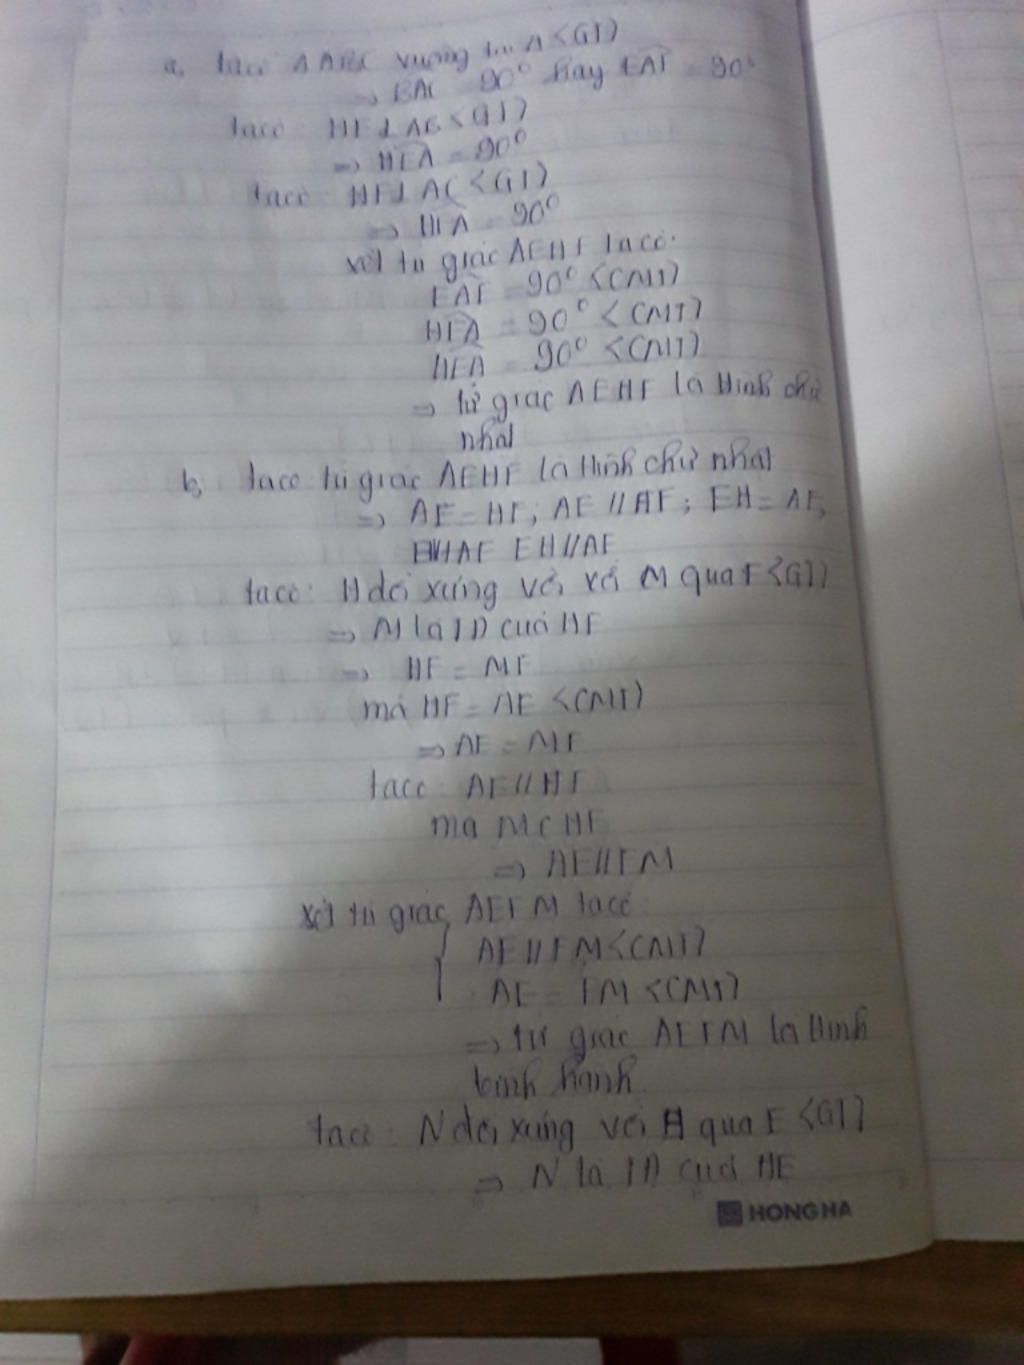 a, ta có ΔABC vuông tại A <GT>
=> BAC = 90° hay EAF = 90°
ta có: HE ⊥ AB <GT>
=> HEA = 90°
ta có: HF ⊥ AC <GT>
=> HFA = 90°
xét tứ giác AEHF ta có:
EAF = 90° <CMT>
HFA = 90° <CMT>
HEA = 90° <CMT>
=> tứ giác AEHF là Hình chữ
nhật
b, ta có tứ giác AEHF là Hình chữ nhật
=> AE = HF; AE // HF; EH = AF;
EH // AF
ta có: H đối xứng với với M qua F <GT>
=> M là TĐ của HF
=> HF = MF
mà HF = AE <CMT>
=> AE = MF
ta có: AE // HF
mà M ∈ HF
=> AE // FM
xét tứ giác AEFM ta có:
AE // FM <CMT>
AE = FM <CMT>
=> tứ giác AEFM là Hình
bình hành
ta có: N đối xứng với H qua E <GT>
=> N là TĐ của HE
HONG HA